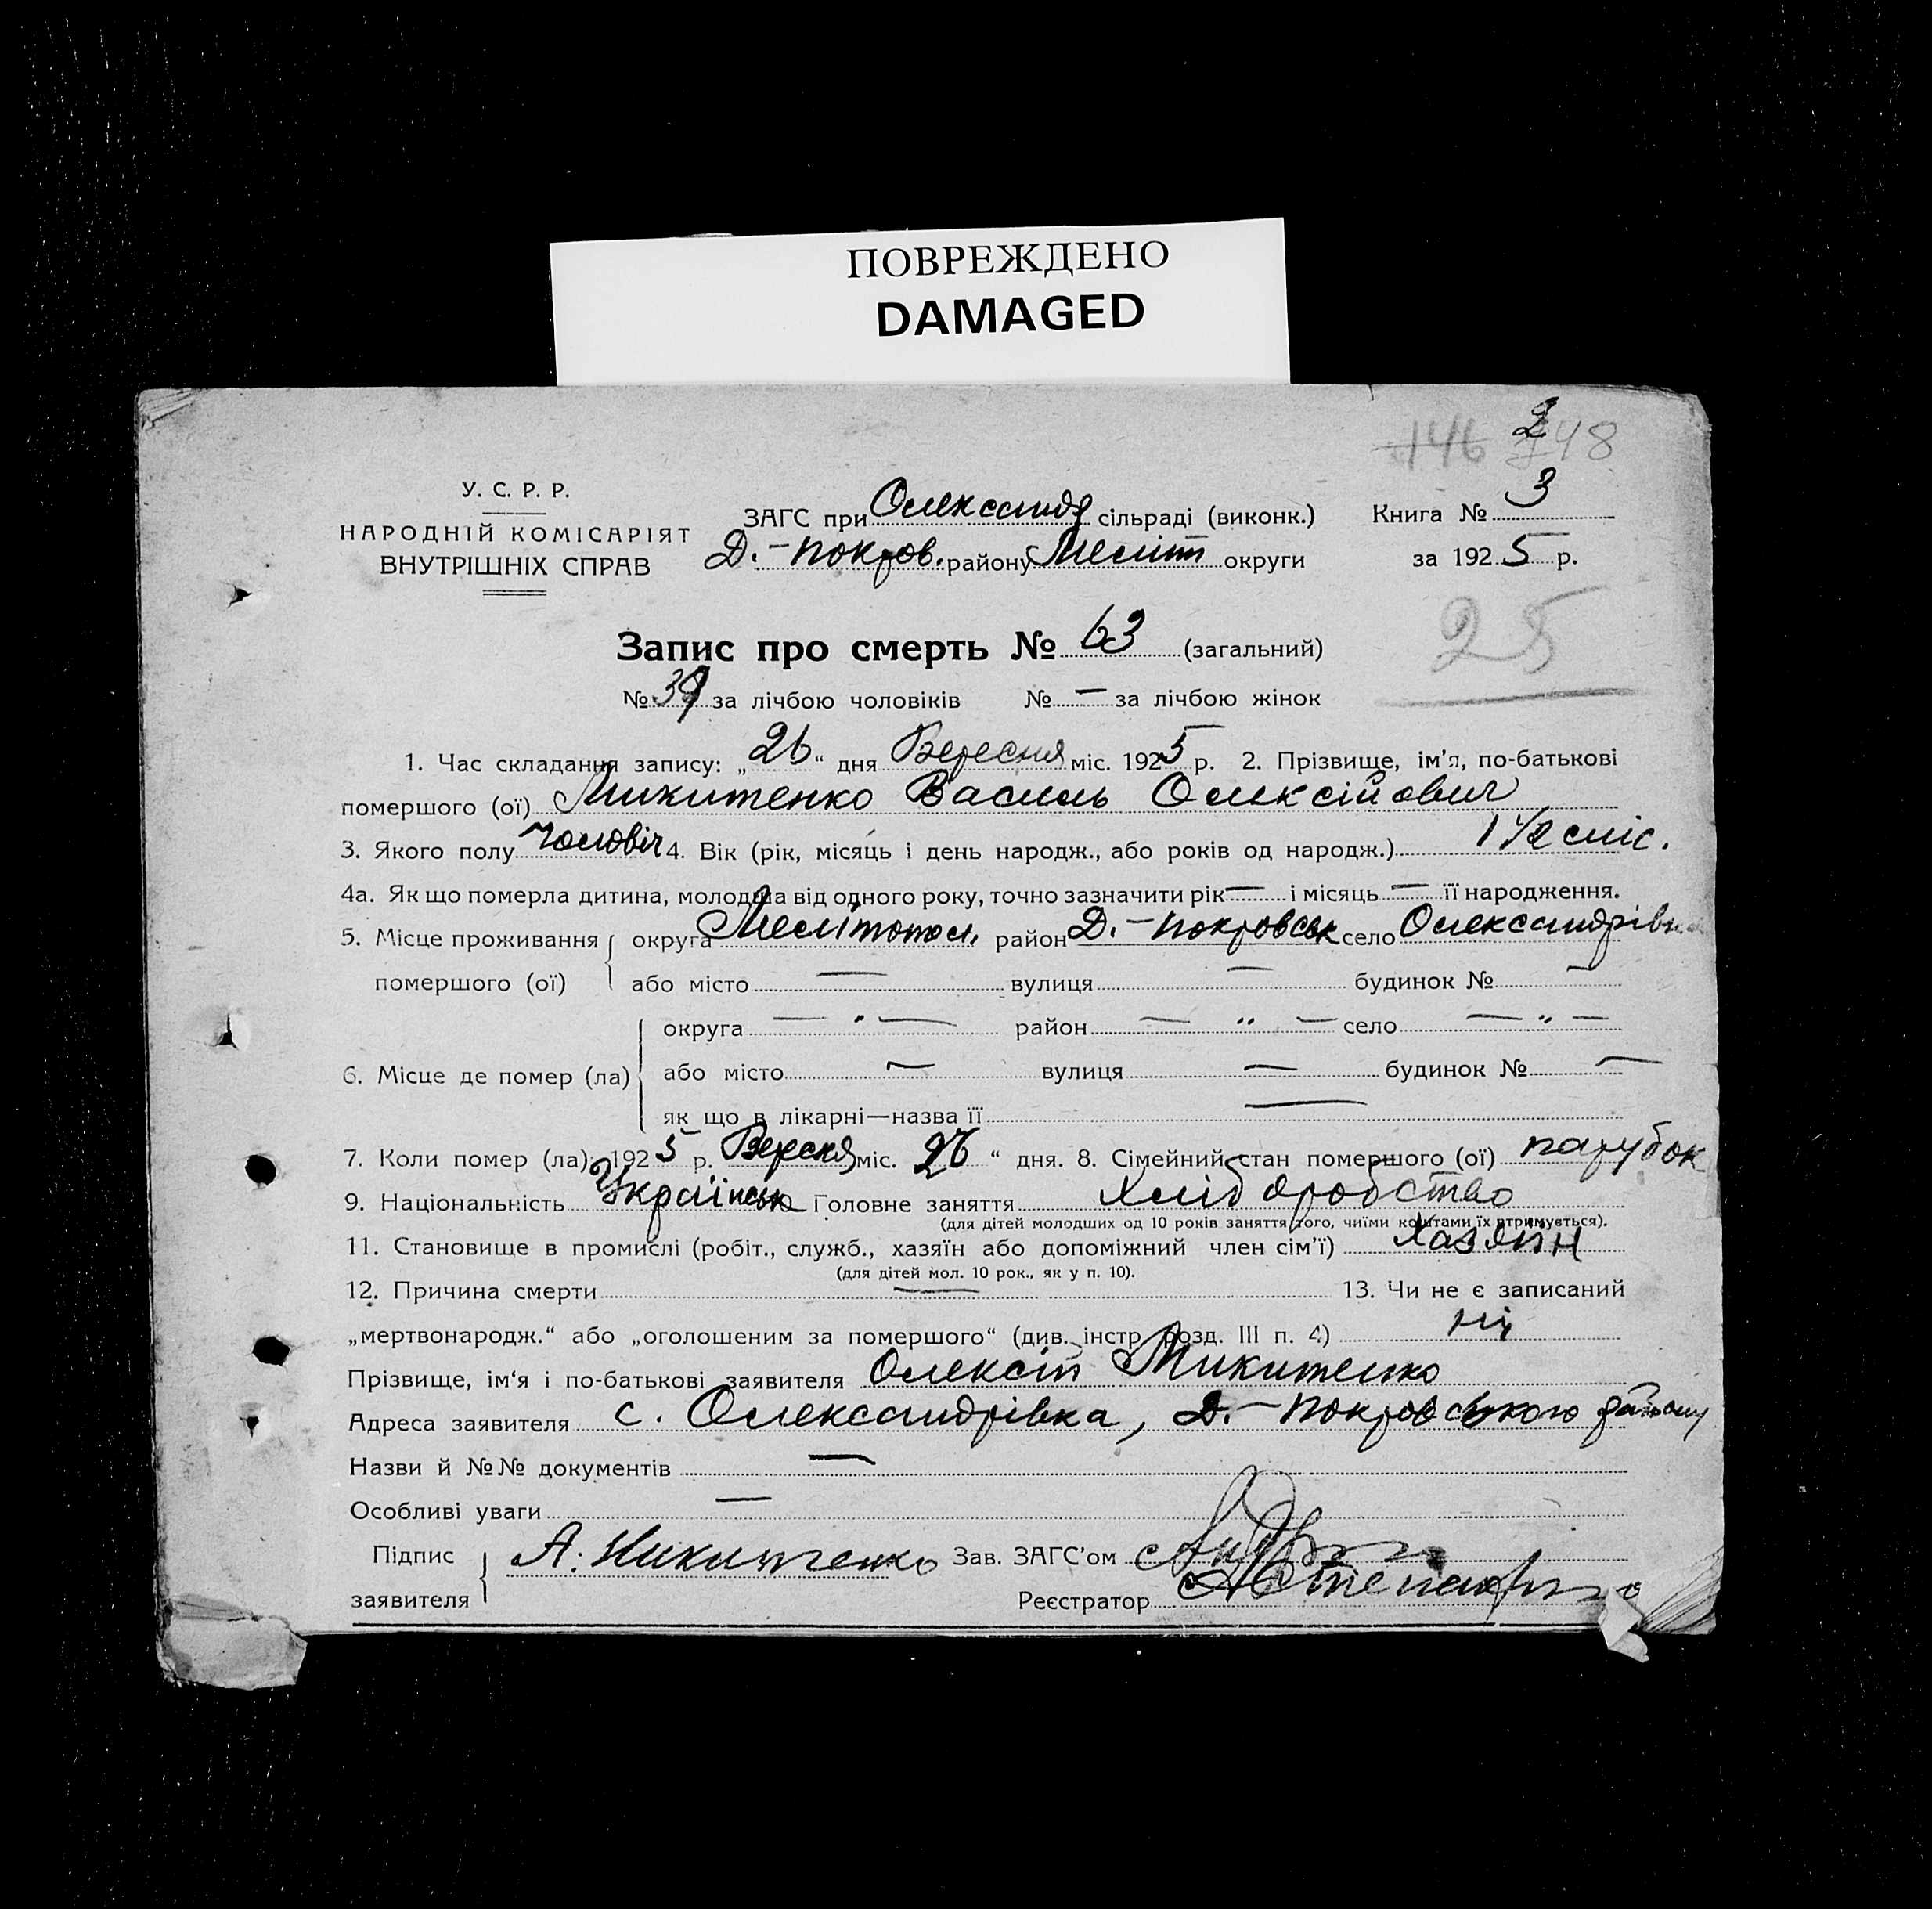 ПОВРЕЖДЕНО
DAMAGED
146 2 148
У. С. Р. Р.
НАРОДНІЙ КОМІСАРІЯТ
ВНУТРІШНІХ СПРАВ
ЗАГС при Олександр сільраді (виконк.)
Д.-Покров. району Меліт округи
Книга № 3
за 1925 р.
25
Запис про смерть № 63 (загальний)
№ 39 за лічбою чоловіків № — за лічбою жінок
1. Час складання запису: „26“ дня Вересня міс. 1925 р. 2. Прізвище, ім'я, по-батькові
помершого (ої) Микитенко Василь Олексійович
3. Якого полу чоловіч 4. Вік (рік, місяць і день народж., або років од народж.) 1 1/2 міс.
4а. Як що померла дитина, молодша від одного року, точно зазначити рік — і місяць — її народження.
5. Місце проживання помершого (ої) округа Мелітопол. район Д.-Покровськ село Олександрівка
або місто — вулиця — будинок № —
6. Місце де помер (ла) округа — „ — район — „ — село — „ —
або місто — вулиця — будинок № —
як що в лікарні—назва її —
7. Коли помер (ла): 1925 р. Вересня міс. 26 “ дня. 8. Сімейний стан помершого (ої) парубок
9. Національність Українськ Головне заняття Хліборобство
(для дітей молодших од 10 років заняття того, чиїми коштами їх втримується).
11. Становище в промислі (робіт., служб., хазяїн або допоміжний член сім'ї) Хазяїн
(для дітей мол. 10 рок., як у п. 10).
12. Причина смерти — 13. Чи не є записаний
„мертвонародж.“ або „оголошеним за помершого“ (див. інстр. розд. III п. 4) ні
Прізвище, ім'я і по-батькові заявителя Олексій Микитенко
Адреса заявителя с. Олександрівка, Д.-Покровського району
Назви й №№ документів —
Особливі уваги —
Підпис заявителя А. Никитенко Зав. ЗАГС'ом
Реєстратор